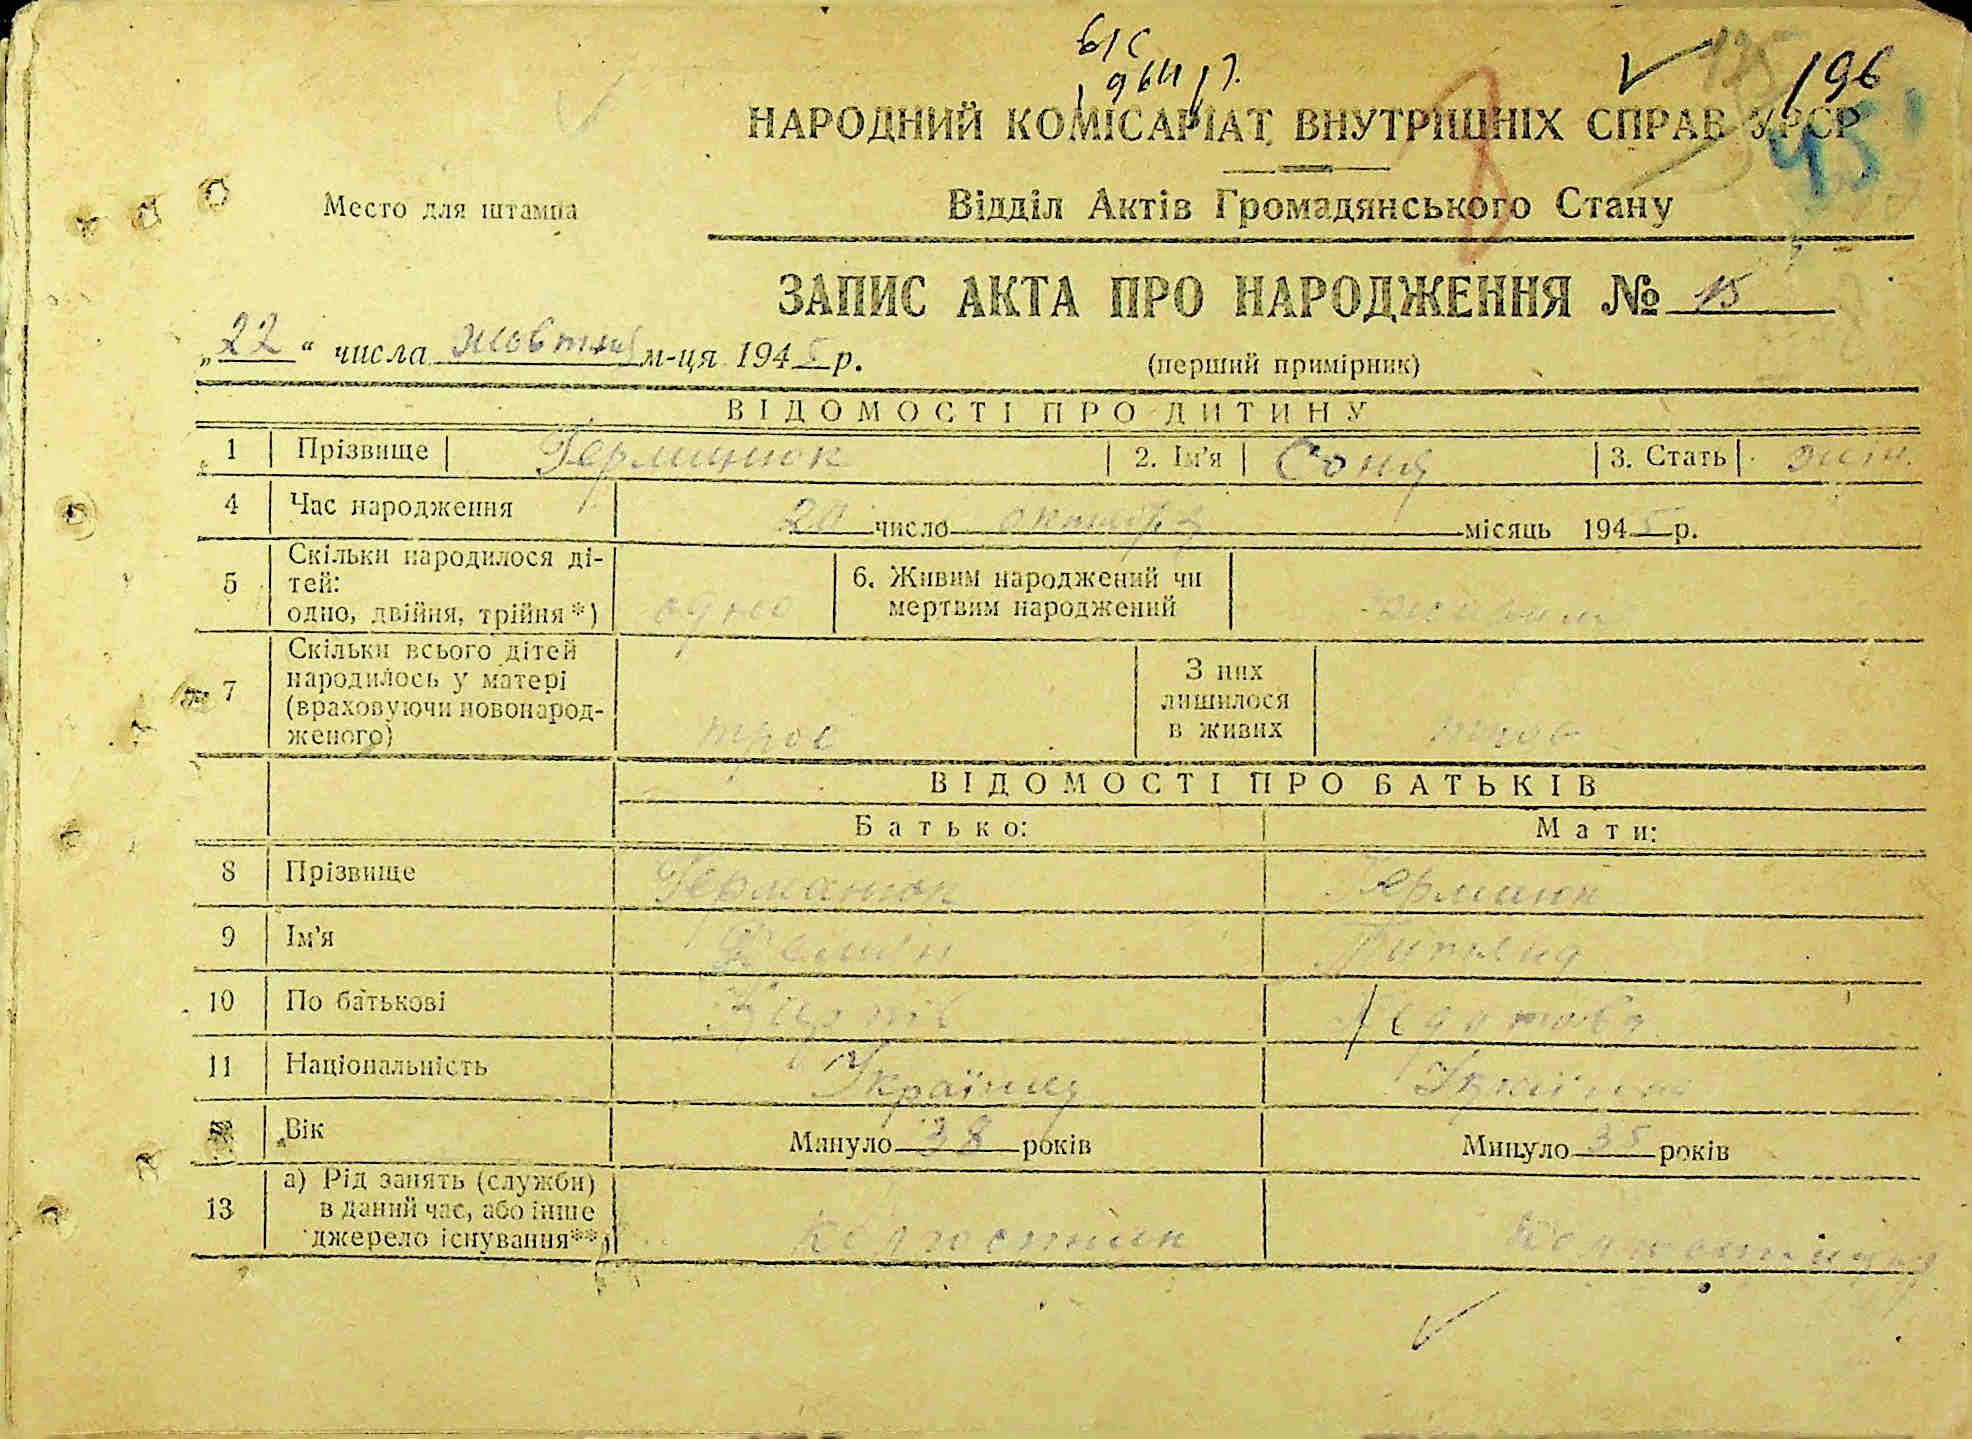 196
45
НАРОДНИЙ КОМІСАРІАТ ВНУТРІШНІХ СПРАВ УРСР
Место для штампа
Відділ Актів Громадянського Стану
ЗАПИС АКТА ПРО НАРОДЖЕННЯ № 15
„22“ числа жовтня м-ця 1945 р.
(перший примірник)
ВІДОМОСТІ ПРО ДИТИНУ
1 Прізвище 2. Ім'я Соня 3. Стать жін.
4 Час народження 20 число октября місяць 1945 р.
5 Скільки народилося ді-
тей:
одно, двійня, трійня*) одно
6. Живим народжений чи
мертвим народжений
7 Скільки всього дітей
народилось у матері
(враховуючи новонарод-
женого) трое
З них
лишилося
в живих трое
ВІДОМОСТІ ПРО БАТЬКІВ
Батько: Мати:
8 Прізвище Германюк
9 Ім'я
10 По батькові
11 Національність Українец Українка
Вік Минуло 38 років Минуло 35 років
13 а) Рід занять (служби)
в даний час, або інше
джерело існування**) колгоспник колгоспниця